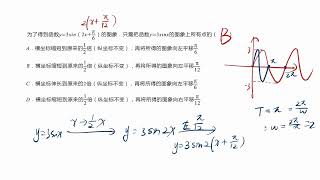 2(x+π/12)
为了得到函数y=3sin(2x+π/6)的图象,只需把函数y=3sinx的图象上所有点的(
B
A.横坐标缩短到原来的1/2倍(纵坐标不变),再将所得的图象向左平移π/6
B.横坐标缩短到原来的1/2倍(纵坐标不变),再将所得的图象向左平移π/12
C.横坐标伸长到原来的2倍(纵坐标不变),再将所得的图象向左平移
D.横坐标缩短到原来的1/2倍(纵坐标不变),再将所得的图象向右平移π/12
3
-3
π
2π
T=π=2π/w
∴w=2π/π=2
y=3sinx x→1/2x y=3sin2x 左π/12
y=3sin2(x+π/12)